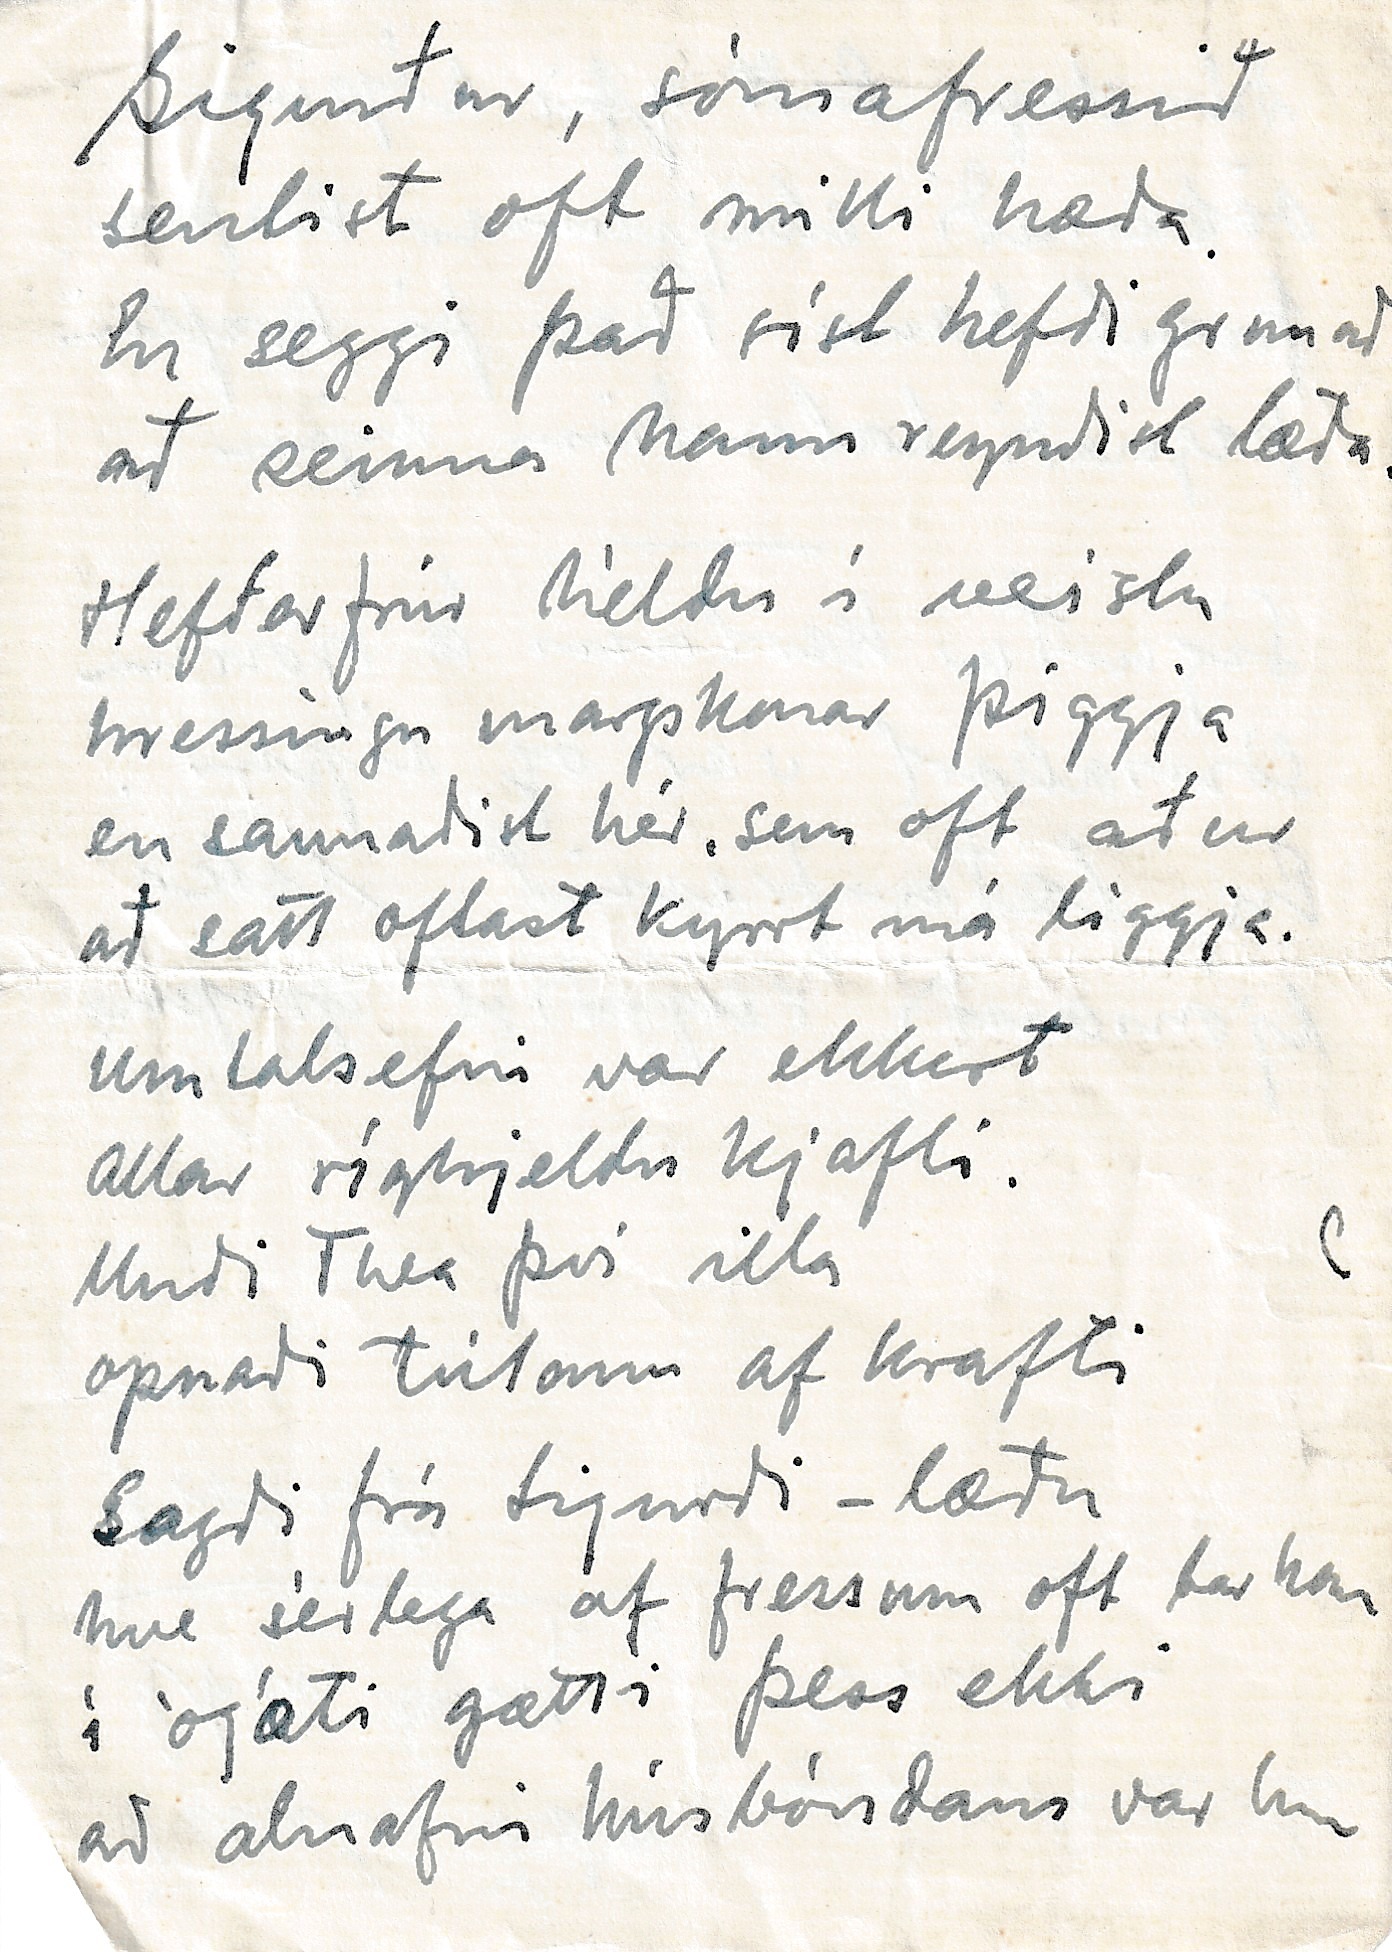 Sigurður, sómafressið
sentist oft milli hæða.
En seggi það síst hefði grunað
að seinna hann reyndist læða.
Hefðarfrúr héldu í veislu
hressingu margskonar þiggja
en sannaðist hér, sem oft áður
að satt oftast kyrrt má liggja.
Umtalsefni var ekkert
allar ríghjeldu kjafti.
Undi Thea því illa
opnaði túlann af krafti
Sagði frá Sigurði - læðu
hve sérlega af fressum oft bar hann
í ógáti gætti þess ekki
að alnafni húsbóndans var hann